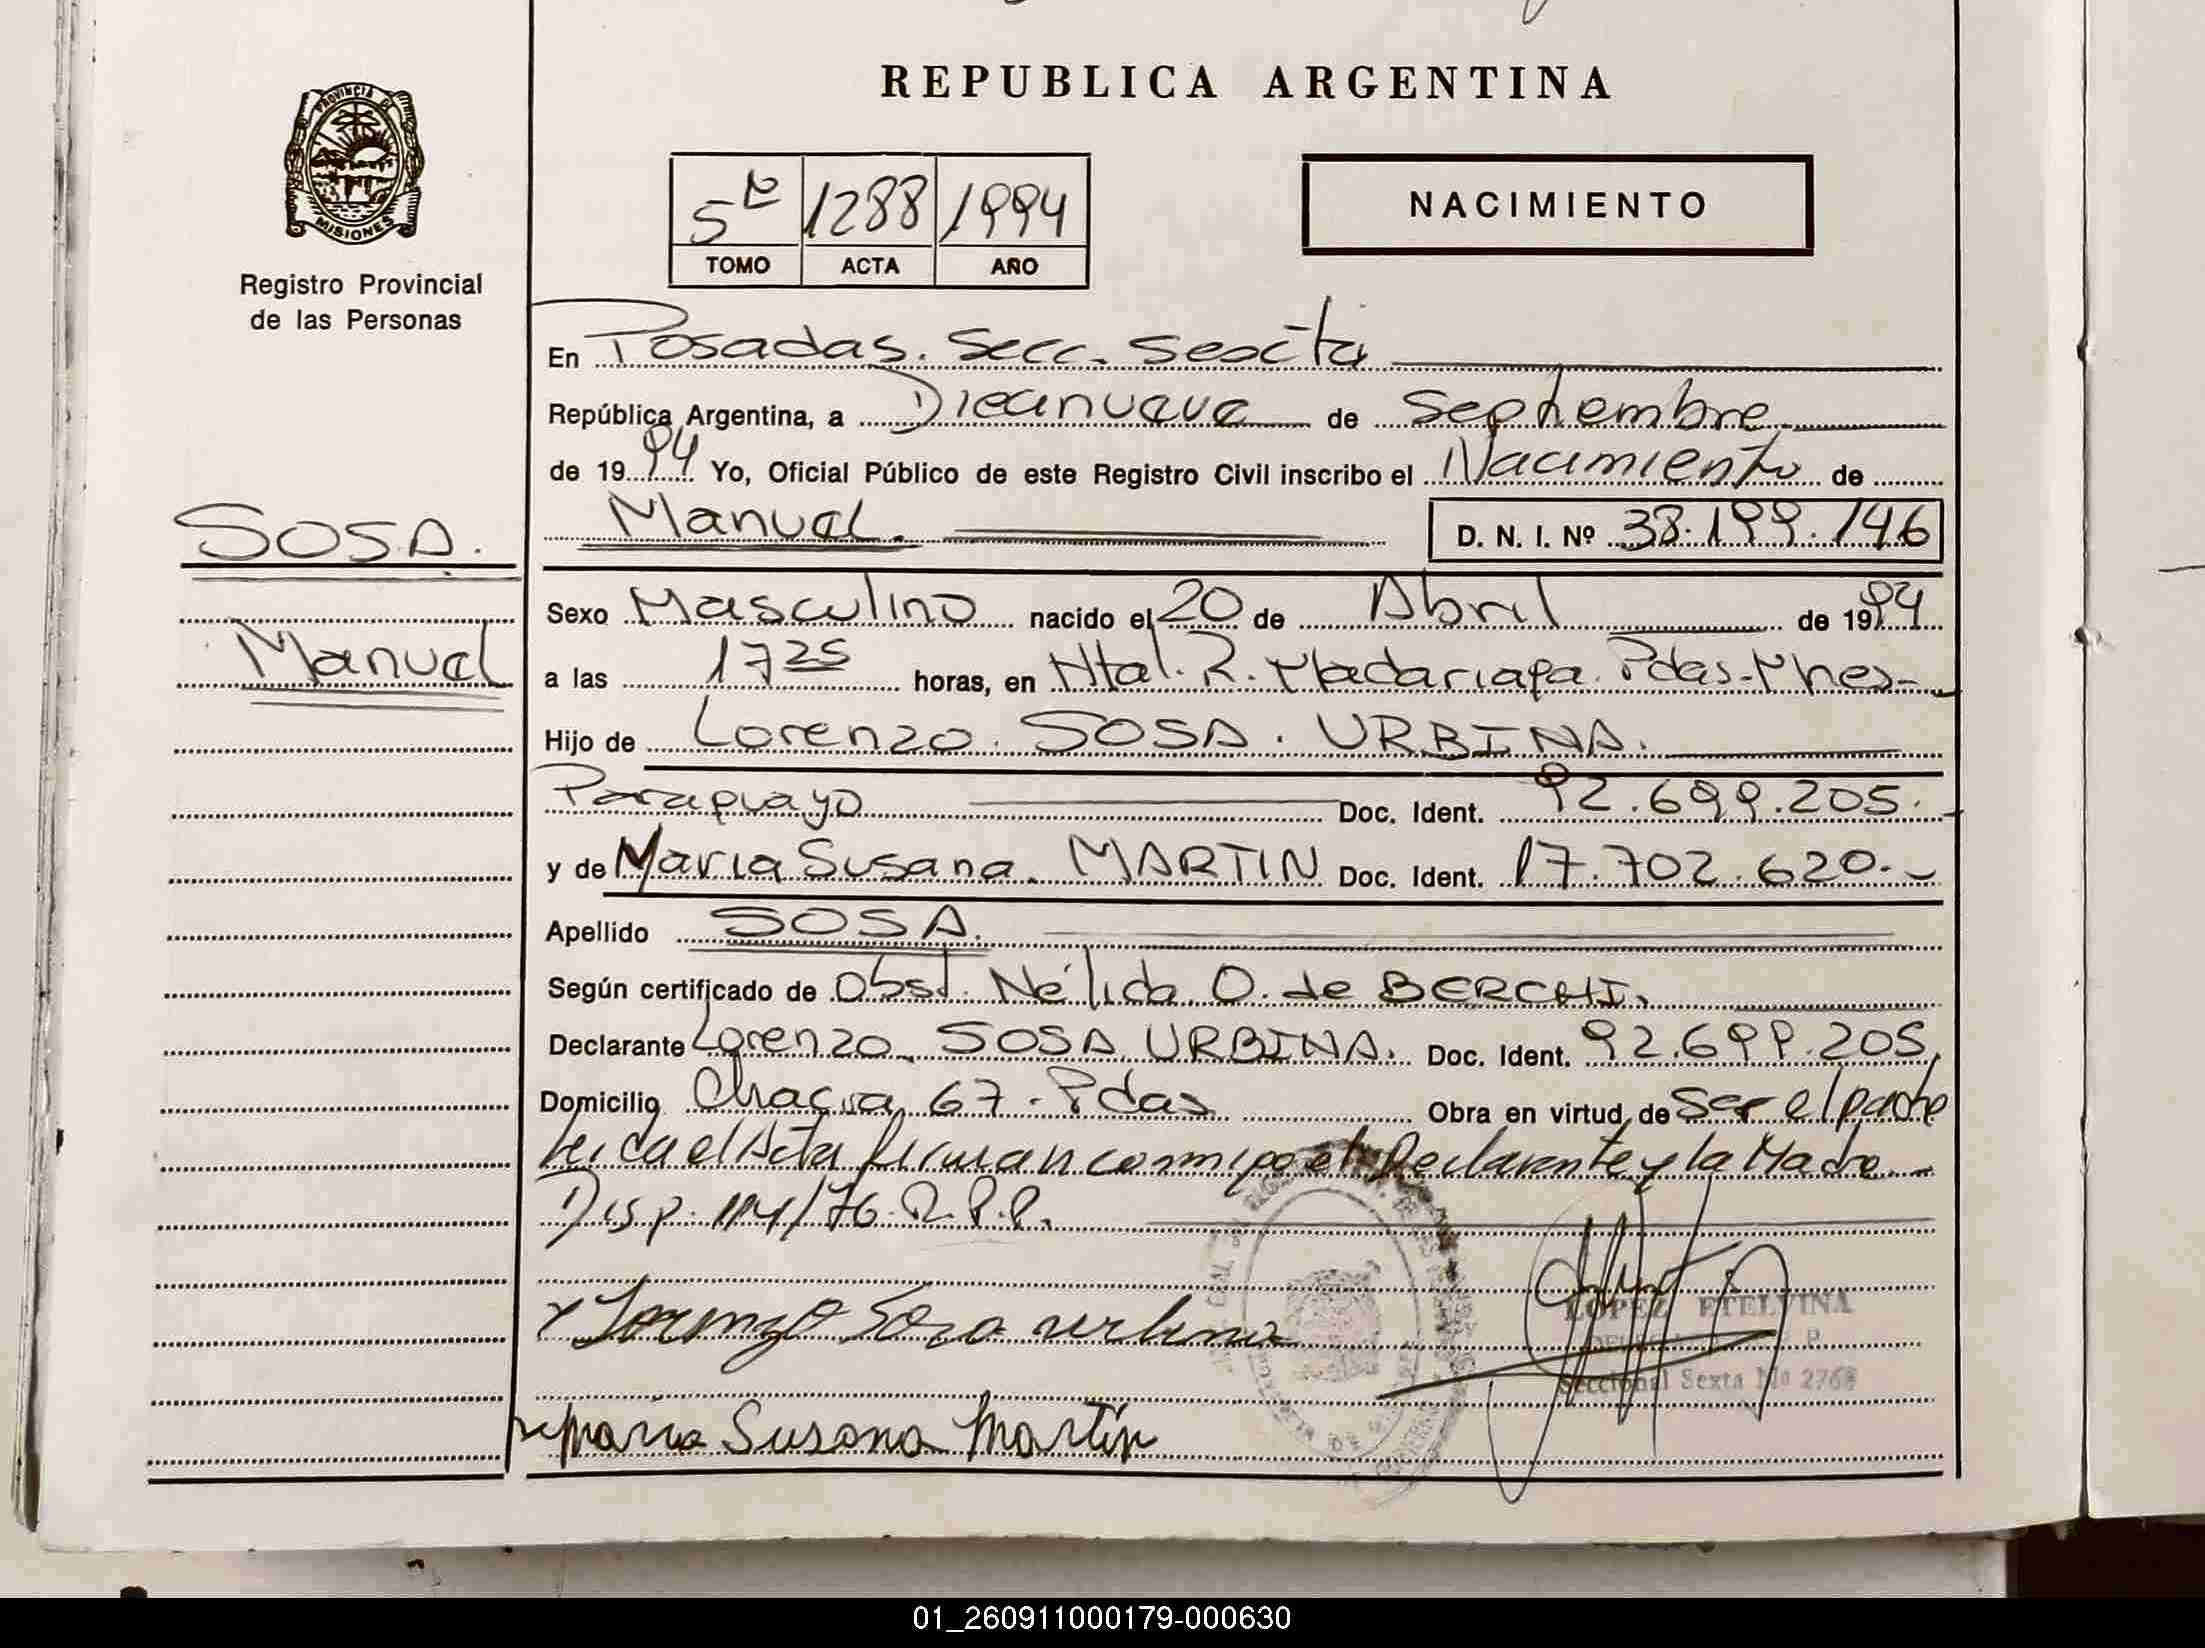 REPUBLICA ARGENTINA
PROVINCIA DE
MISIONES
Registro Provincial
de las Personas
5 1288 1994
TOMO ACTA AÑO
NACIMIENTO
En Posadas. Secc. Sexta
República Argentina, a Diecinueve de Septiembre
de 1994 Yo, Oficial Público de este Registro Civil inscribo el Nacimiento de
Manuel. D. N. I. Nº 38.199.146
SOSA.
Manuel
Sexo Masculino nacido el 20 de Abril de 1994
a las 17 25 horas, en Htal. R. Madariaga. Pdas-Mnes-
Hijo de Lorenzo. SOSA. URBINA.
Paraguayo Doc. Ident. 92.699.205.-
y de Maria Susana. MARTIN Doc. Ident. 17.702.620.-
Apellido SOSA.
Según certificado de Obst. Nélida O. de BERCHI.
Declarante Lorenzo. SOSA URBINA. Doc. Ident. 92.699.205.
Domicilio Chacra 67. Pdas Obra en virtud de ser el padre
leida el Acta firman conmigo el Declarante y la Madre.
Disp. 114/76. R.P.P.
x Lorenzo Sosa urbina
LOPEZ ETELVINA
Seccional Sexta Nº 2768
x Maria Susana Martin
01_260911000179-000630